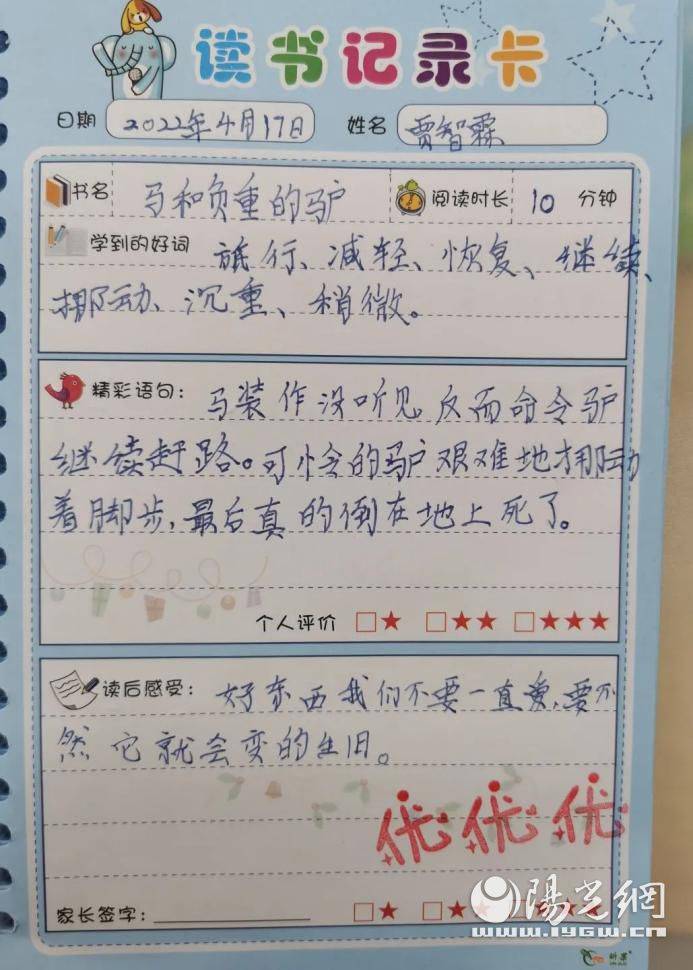 读书记录卡
日期 2022年4月17日 姓名 贾智霖
书名 马和负重的驴 阅读时长 10 分钟
学到的好词 旅行、减轻、恢复、继续、
挪动、沉重、稍微。
精彩语句：马装作没听见反而命令驴
继续赶路。可怜的驴艰难地挪动
着脚步，最后真的倒在地上死了。
个人评价 □★ □★★ □★★★
读后感受：好东西我们不要一直爱，要不
然它就会变的生旧。
优 优 优
家长签字： □★ □★★ □★★★
陽光網
www.iygw.cn